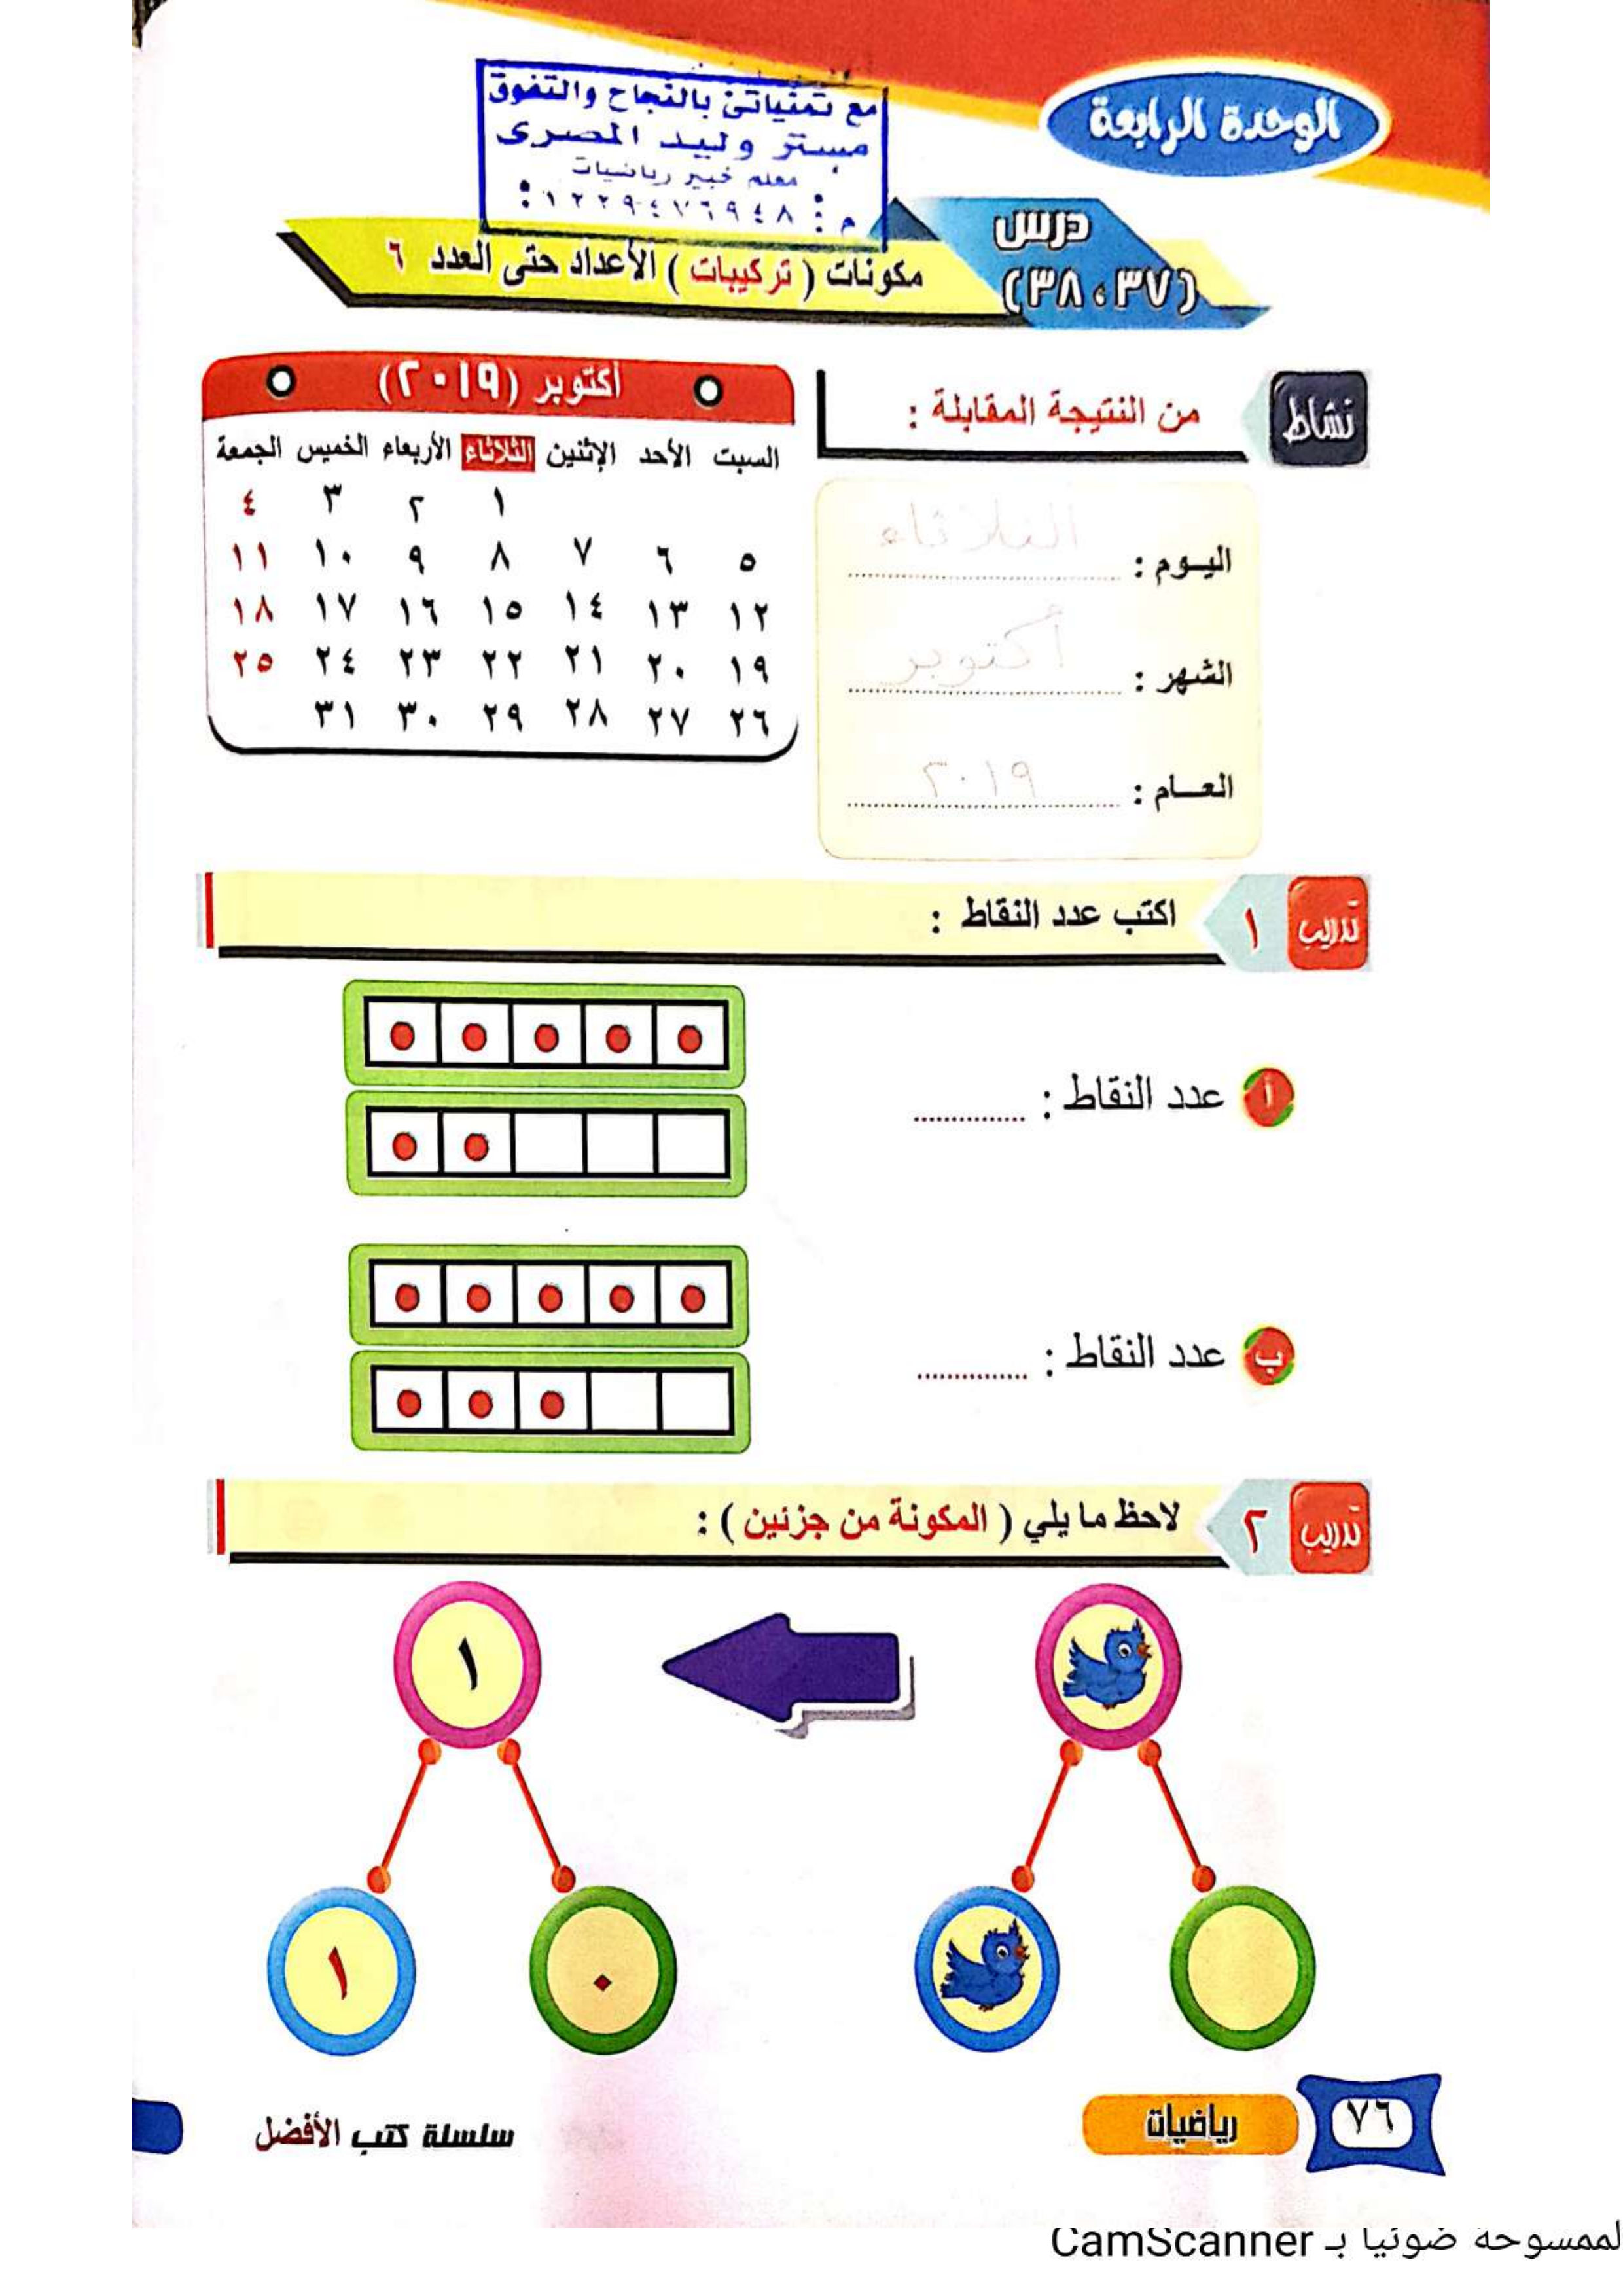 الوحدة الرابعة
مع تمنياتى بالنجاح والتفوق
مستر وليد المصرى
معلم خبير رياضيات
م : ٠١٢٢٩٤٧٦٩٤٨ :
درس
(٣٧ ، ٣٨)
مكونات ( تركيبات ) الأعداد حتى العدد ٦
نشاط
من النتيجة المقابلة :
أكتوبر (٢٠١٩)
السبت الأحد الإثنين الثلاثاء الأربعاء الخميس الجمعة
١ ٢ ٣ ٤
٥ ٦ ٧ ٨ ٩ ١٠ ١١
١٢ ١٣ ١٤ ١٥ ١٦ ١٧ ١٨
١٩ ٢٠ ٢١ ٢٢ ٢٣ ٢٤ ٢٥
٢٦ ٢٧ ٢٨ ٢٩ ٣٠ ٣١
اليوم : الثلاثاء
الشهر : أكتوبر
العام : ٢٠١٩
تدريب ١ اكتب عدد النقاط :
أ عدد النقاط : ............
ب عدد النقاط : ............
تدريب ٢ لاحظ ما يلي ( المكونة من جزئين ) :
١
٠ ١
٧٦ رياضيات
سلسلة كتب الأفضل
لممسوحة ضوئيا بـ CamScanner